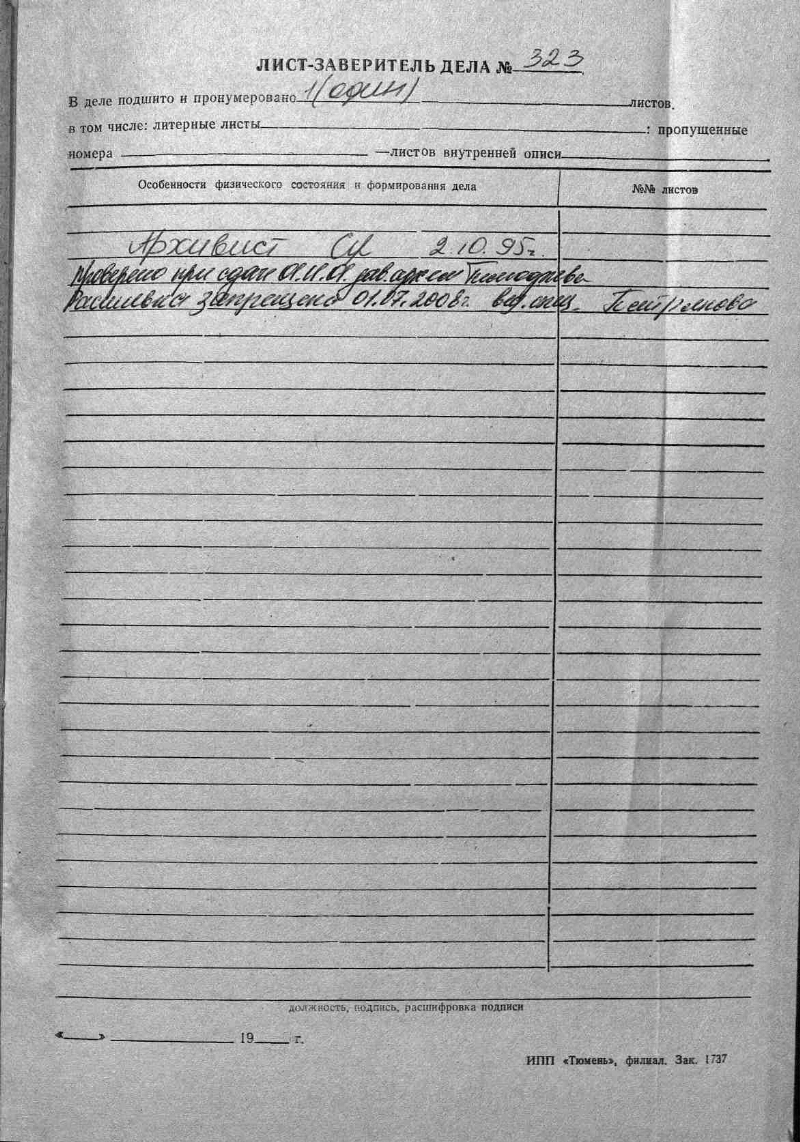 ЛИСТ-ЗАВЕРИТЕЛЬ ДЕЛА № 323
В деле подшито и пронумеровано 1 (один) листов.
в том числе: литерные листы ; пропущенные
номера —листов внутренней описи
Особенности физического состояния и формирования дела №№ листов
Архивист 2.10.95г.
Проверено при сдаче 01.11.01
запрещено 01.07.2008г. вед. спец.
должность, подпись, расшифровка подписи
« » 19 г.
ИПП «Тюмень», филиал. Зак. 1737